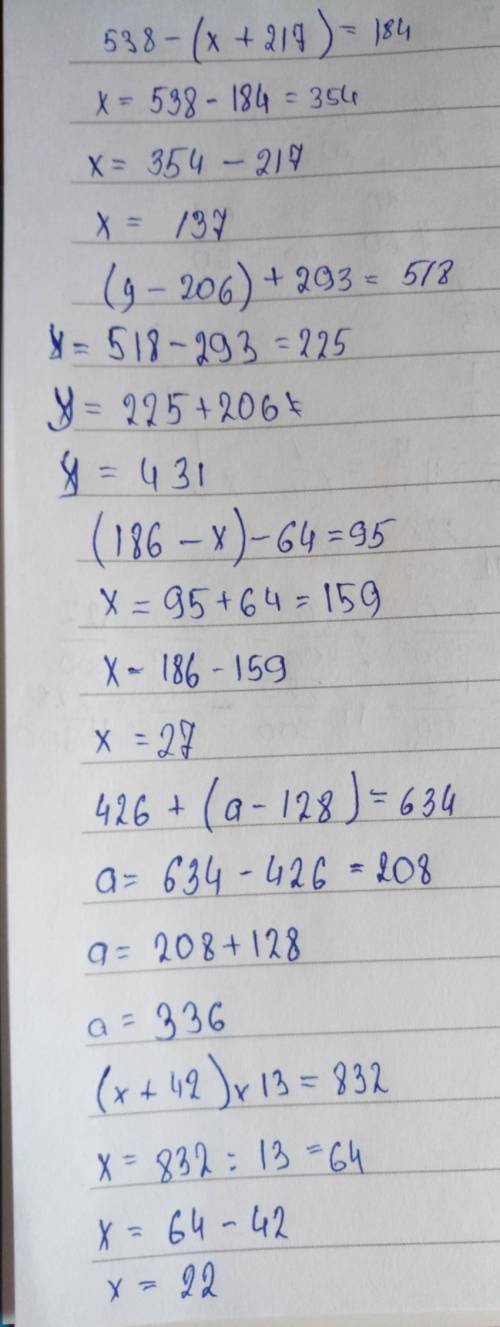 538 - (x + 217) = 184
x = 538 - 184 = 354
x = 354 - 217
x = 137
(y - 206) + 293 = 518
y = 518 - 293 = 225
y = 225 + 206
y = 431
(186 - x) - 64 = 95
x = 95 + 64 = 159
x - 186 - 159
x = 27
426 + (a - 128) = 634
a = 634 - 426 = 208
a = 208 + 128
a = 336
(x + 42) x 13 = 832
x = 832 : 13 = 64
x = 64 - 42
x = 22